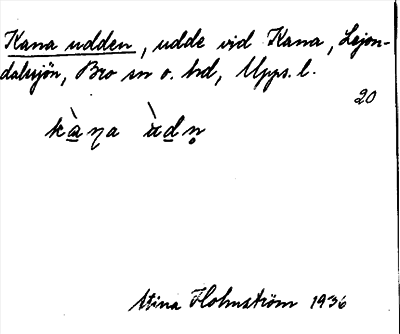 Kana udden, udde vid Kana, Lejon-
dalssjön, Bro sn o. hd, Upps. l.
20
kàna ùdn̥
Stina Holmström 1936